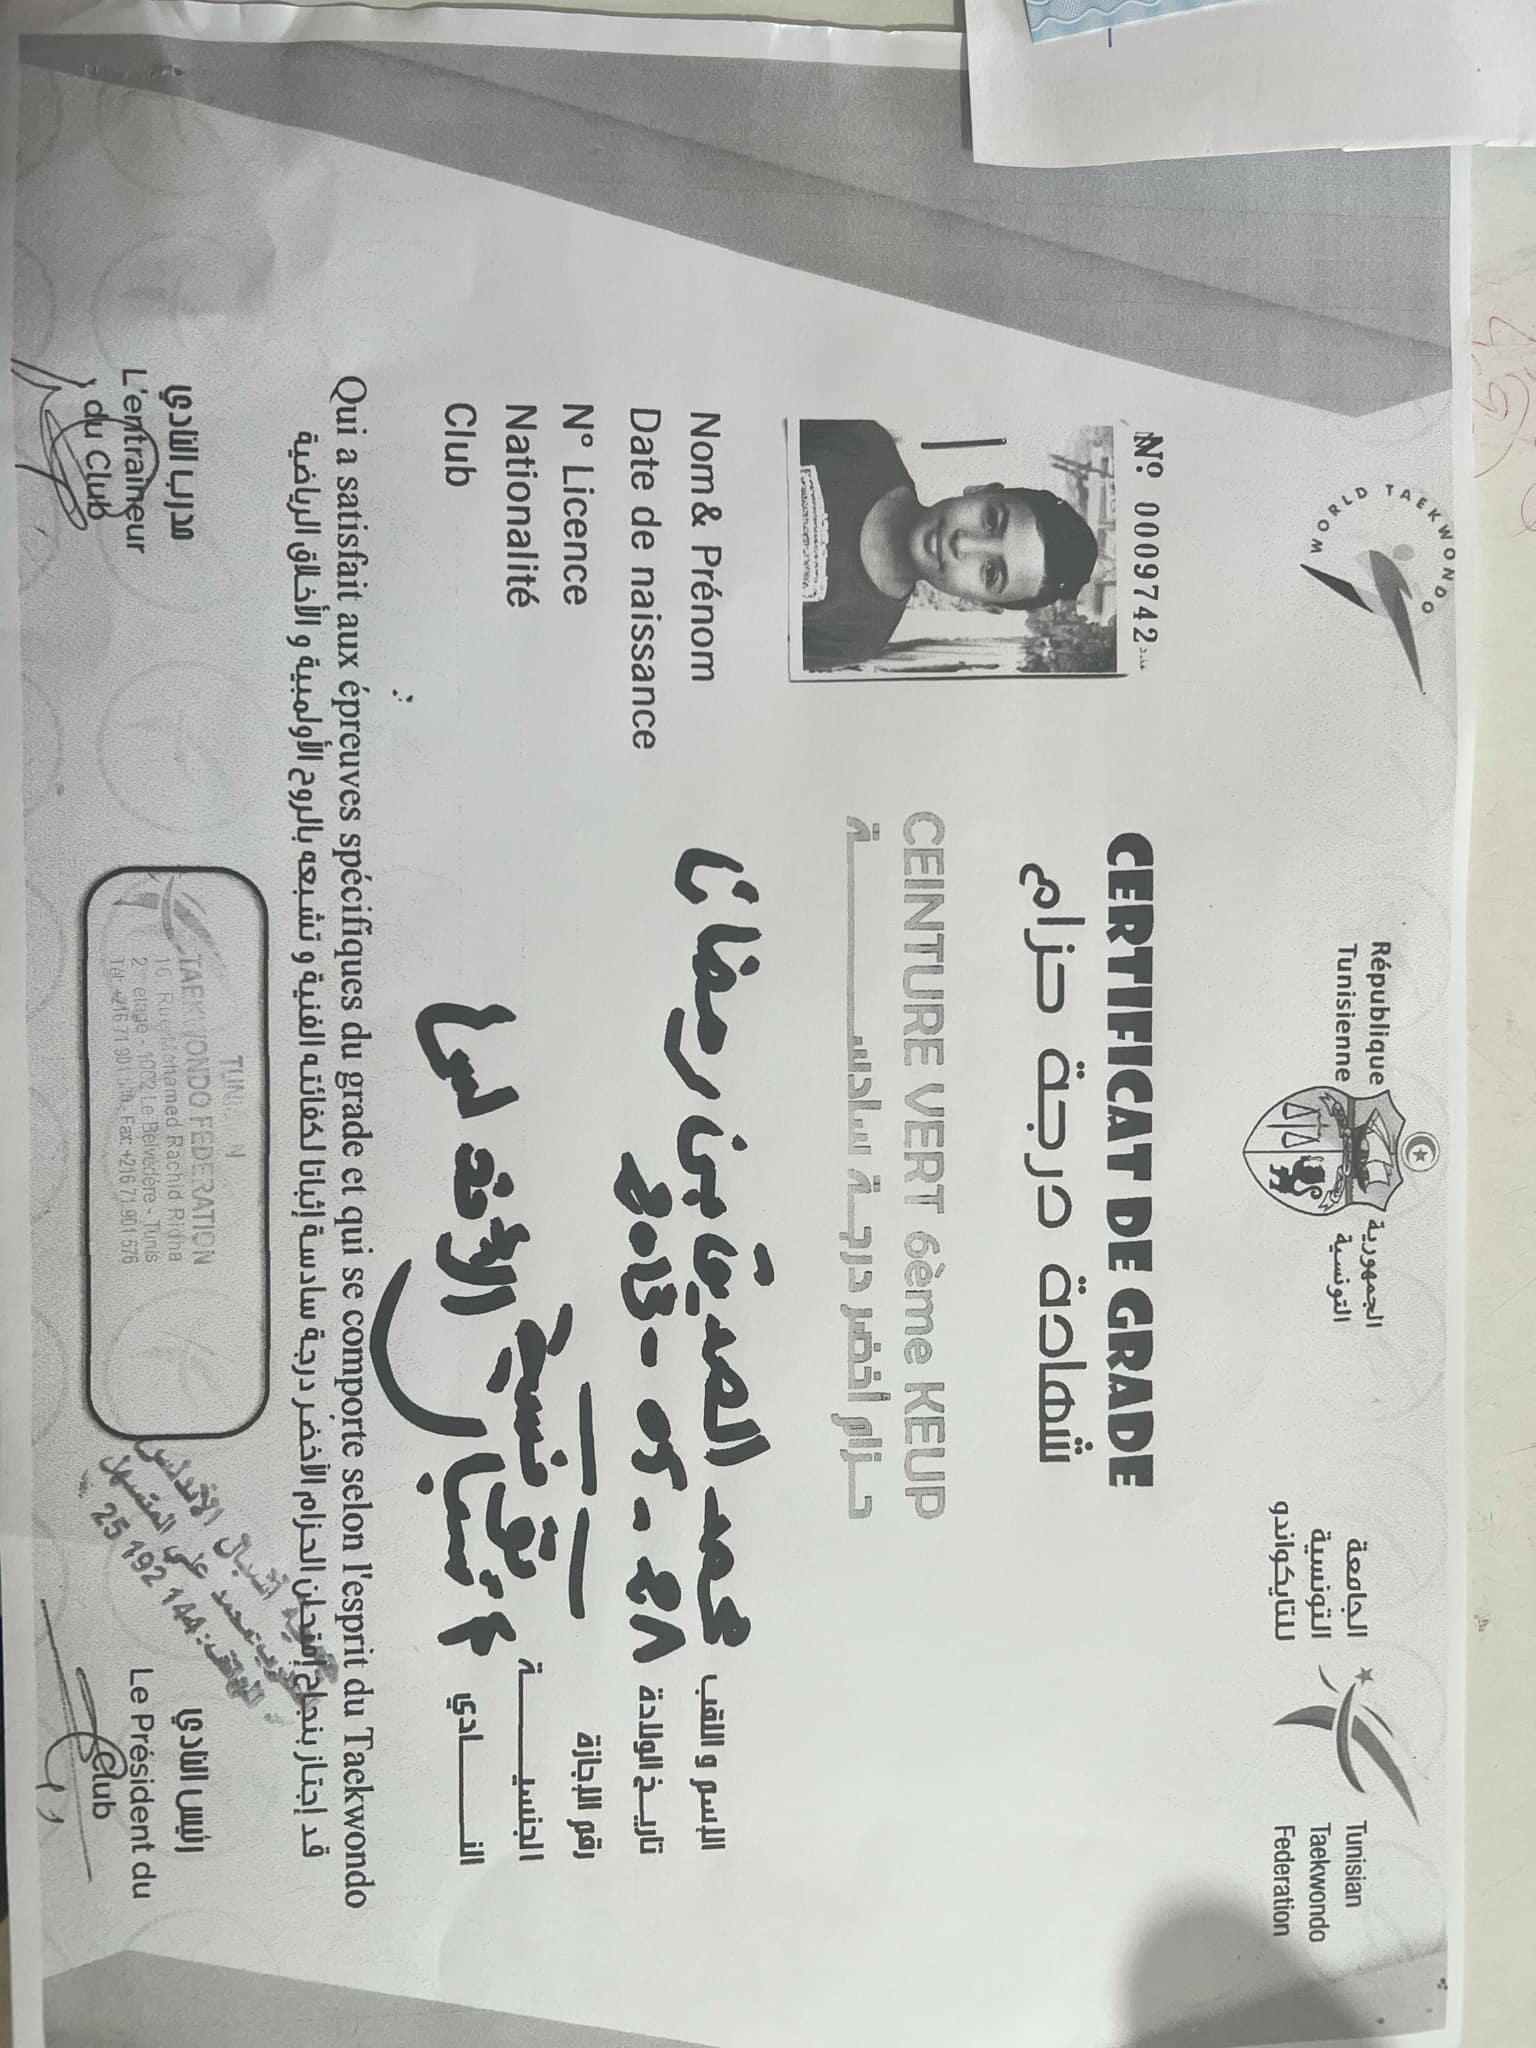 WORLD TAEKWONDO
République
Tunisienne
الجمهورية
التونسية
الجامعة
التونسية
للتايكواندو
Tunisian
Taekwondo
Federation
Nº 0009742 عدد
CERTIFICAT DE GRADE
شهادة درجة حزام
CEINTURE VERT 6ème KEUP
حـزام أخضر درجـة سادســـــــة
Nom & Prénom محمد الصديق بن رمضان الإسم و اللقب
Date de naissance تاريـخ الولادة
N° Licence رقم الإجازة
Nationalité تونسية الجنسيـــــــة
Club أشبال الأندلس النـــــــادي
Qui a satisfait aux épreuves spécifiques du grade et qui se comporte selon l'esprit du Taekwondo
قد إجتاز بنجاح إمتحان الحزام الأخضر درجة سادسة إثباتا لكفائته الفنية و تشبعه بالروح الأولمبية و الأخلاق الرياضية
مدرب النادي
L'entraîneur
du Club
TAEKWONDO FEDERATION
16, Rue Mohamed Rachid Ridha
2ème etage - 1002 Le Belvedère - Tunis
Fax: +216 71 901 576
أشبال الأندلس
محمد علي
25 192 144
رئيس النادي
Le Président du
Club